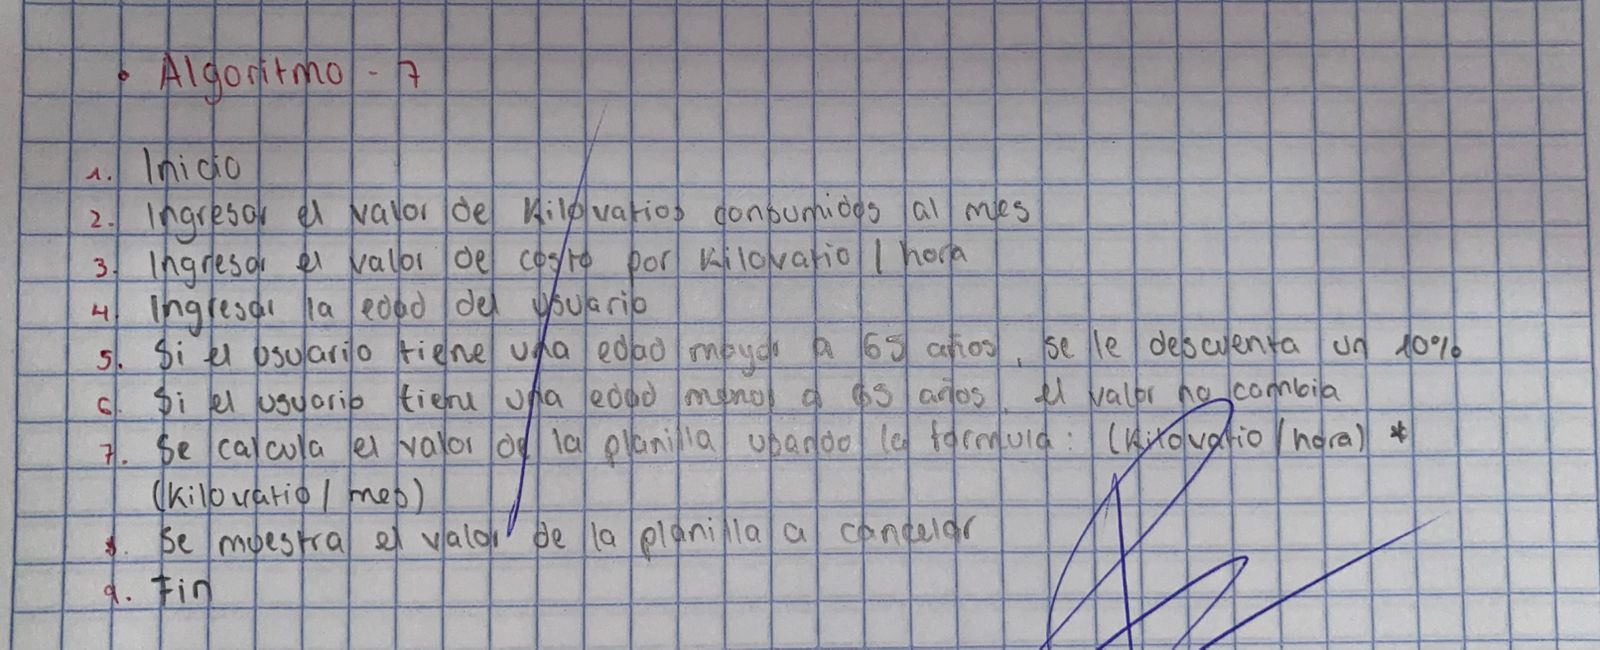 • Algoritmo - 7
1. Inicio
2. Ingresar el valor de Kilovatios consumidos al mes
3. Ingresar el valor de costo por Kilovatio / hora
4. Ingresar la edad del usuario
5. Si el usuario tiene una edad mayor a 65 años, se le descuenta un 10%
6. Si el usuario tiene una edad menor a 65 años, el valor no cambia
7. Se calcula el valor de la planilla usando la fórmula: (Kilovatio / hora) *
(Kilovatio / mes)
8. Se muestra el valor de la planilla a cancelar
9. Fin